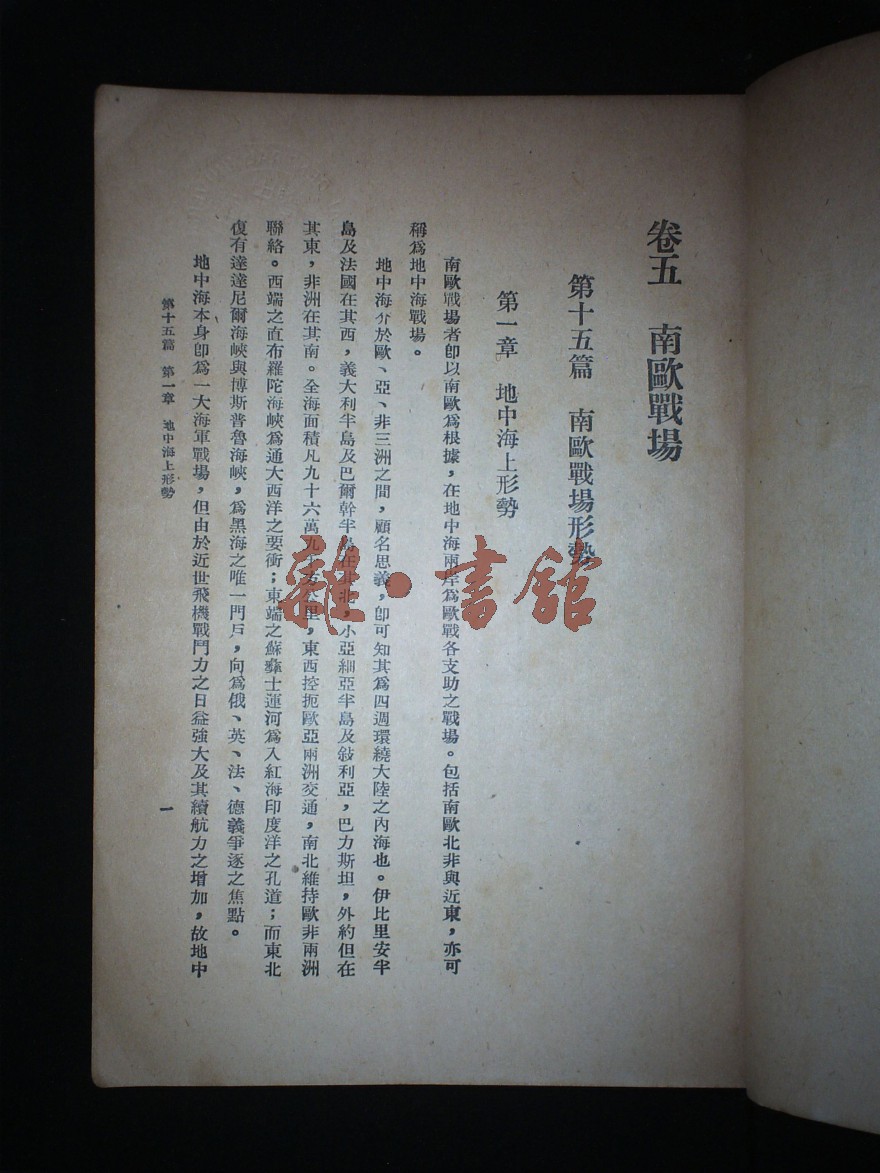 卷五　南歐戰場
第十五篇　南歐戰場形勢
第一章　地中海上形勢
南歐戰場者卽以南歐爲根據，在地中海兩岸爲歐戰各支助之戰場。包括南歐北非與近東，亦可
稱爲地中海戰場。
地中海介於歐、亞、非三洲之間，顧名思義，卽可知其爲四週環繞大陸之內海也。伊比里安半
島及法國在其西，義大利半島及巴爾幹半島在其北，小亞細亞半島及敍利亞，巴力斯坦，外約但在
其東，非洲在其南。全海面積凡九十六萬九千方公里，東西控扼歐亞兩洲交通，南北維持歐非兩洲
聯絡。西端之直布羅陀海峽爲通大西洋之要衝；東端之蘇彝士運河爲入紅海印度洋之孔道；而東北
復有達達尼爾海峽與博斯普魯海峽，爲黑海之唯一門戶，向爲俄、英、法、德義爭逐之焦點。
地中海本身卽爲一大海軍戰場，但由於近世飛機戰鬥力之日益強大及其續航力之增加，故地中
第十五篇　第一章　地中海上形勢
一
雜·書館